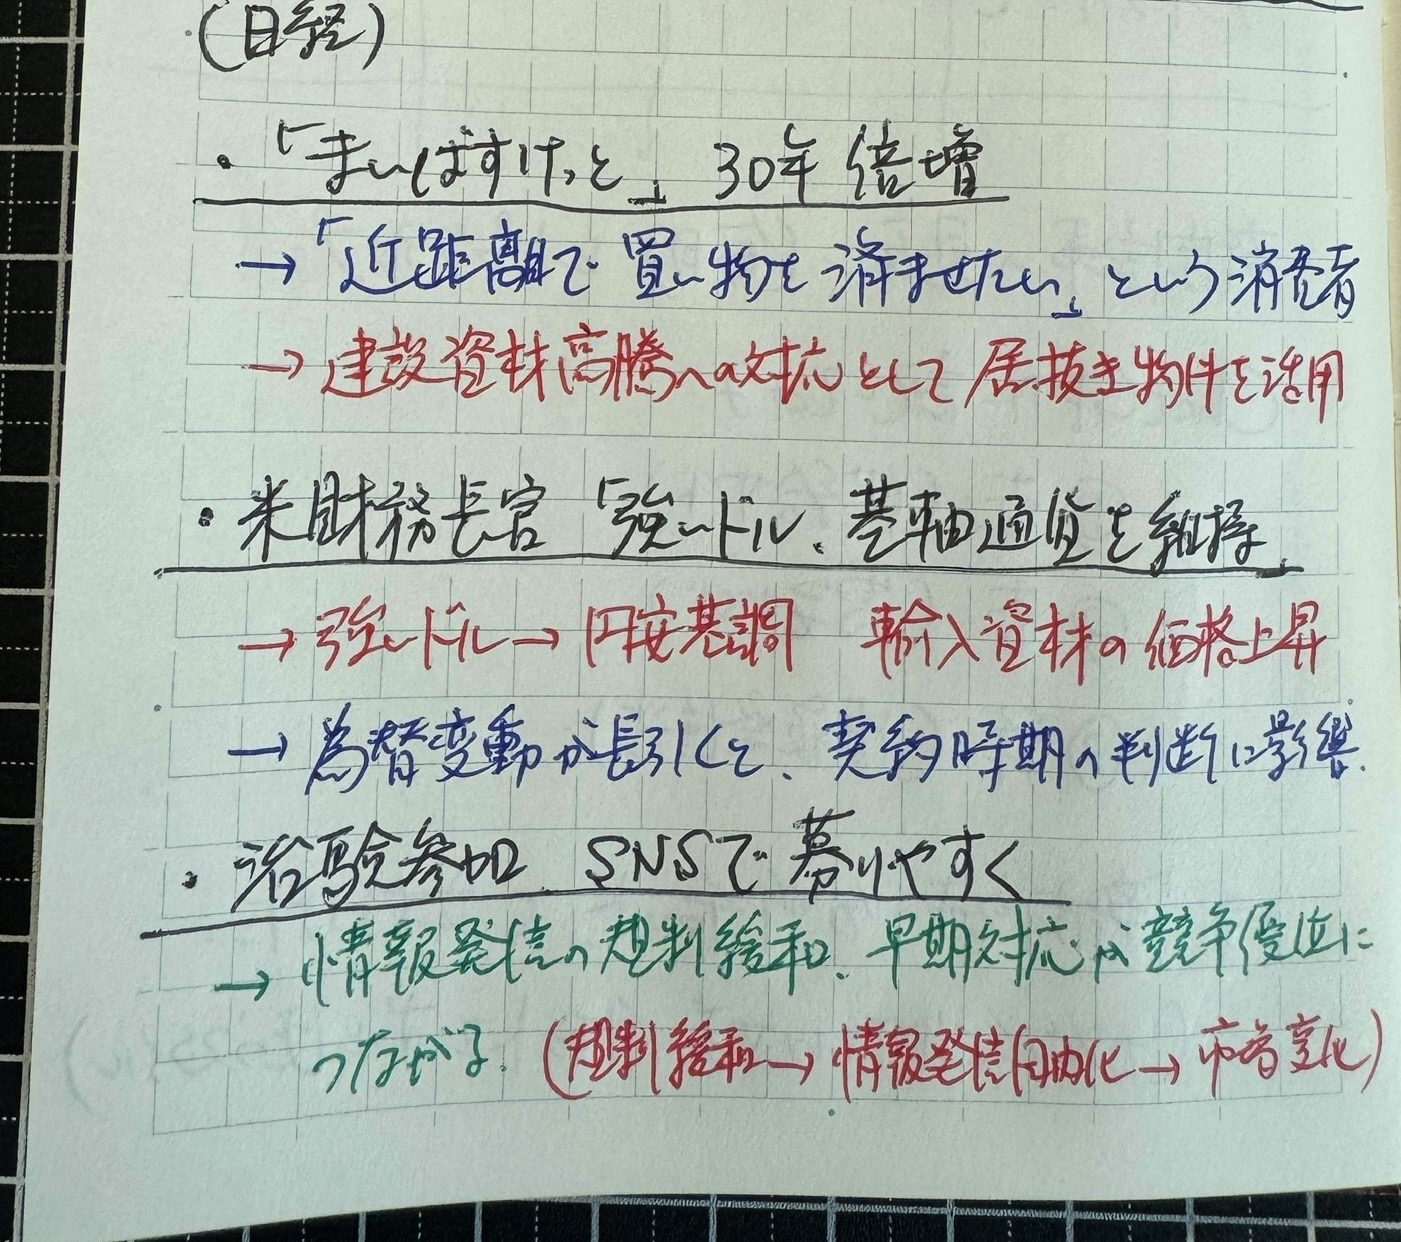 (日経)
・「まいばすけっと」 30年 倍増
→「近距離で買い物を済ませたい」という消費者
→ 建設資材高騰への対応として居抜き物件を活用
・米財務長官「強いドル、基軸通貨を維持」
→ 強いドル→円安基調 輸入資材の価格上昇
→ 為替変動が長引くと、契約時期の判断に影響.
・治験参加 SNSで募りやすく
→ 情報発信の規制緩和、早期対応が競争優位に
つながる. (規制緩和→情報発信自由化→市場変化)